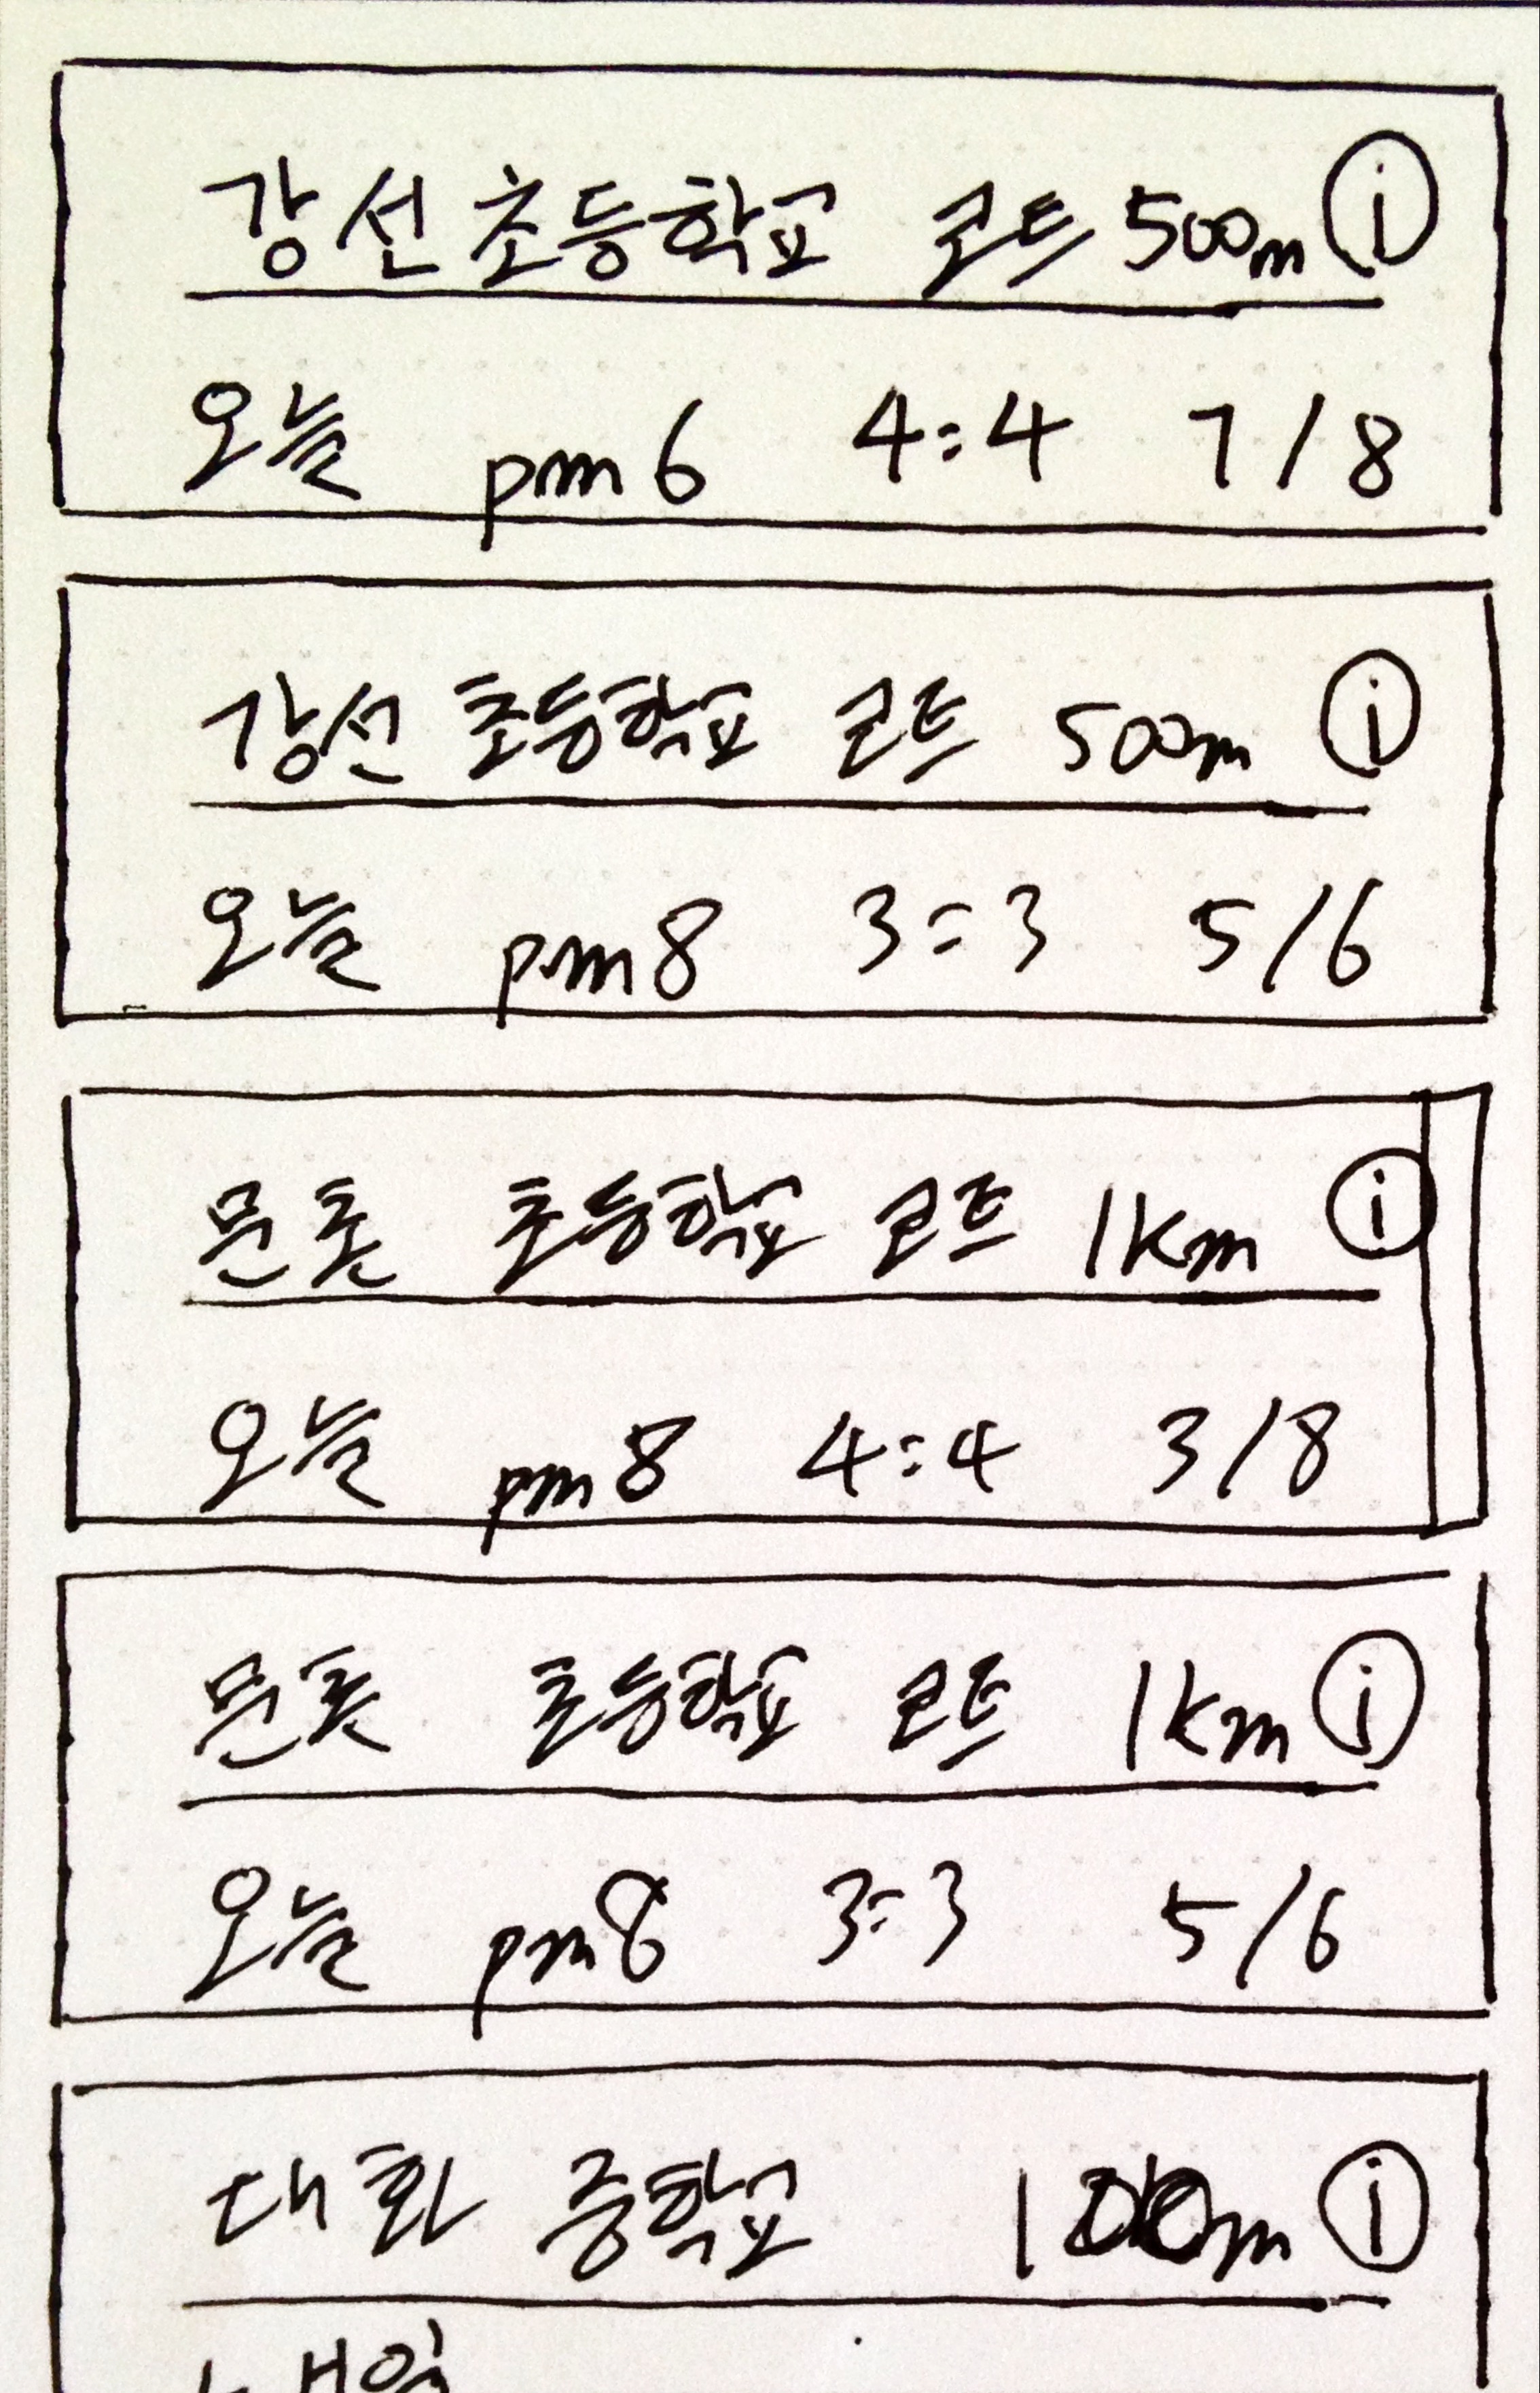 강선초등학교 코트 500m i
오늘 pm 6 4:4 7/8
강선 초등학교 코트 500m i
오늘 pm 8 3:3 5/6
문촌 초등학교 코트 1km i
오늘 pm 8 4:4 3/8
문촌 초등학교 코트 1km i
오늘 pm 8 3:3 5/6
대화 중학교 i
내일